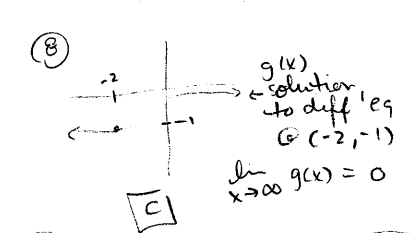 8
-2
g(x)
← solution
to diff'eq
-1
@ (-2,-1)
lim g(x) = 0
x→∞
C